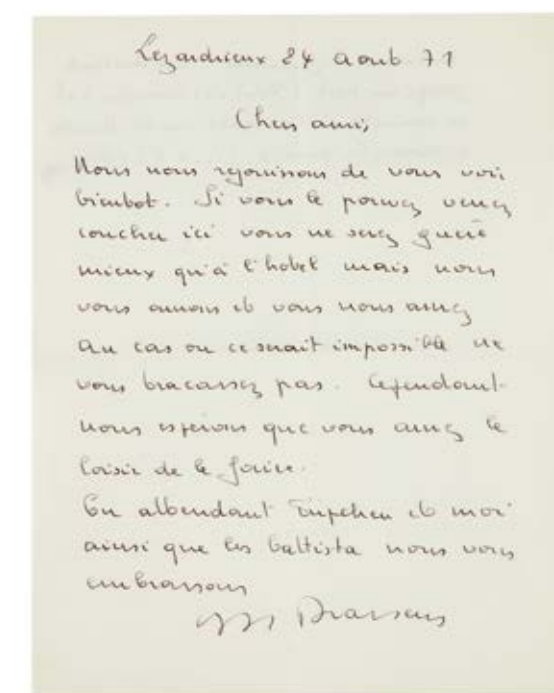 Lezardrieux 24 aout 71
Chers amis,
Nous nous rejouissons de vous voir
bientot. Si vous le pouvez venez
coucher ici vous ne serez guere
mieux qu'à l'hotel mais nous
vous aurons et vous nous aurez
au cas ou ce serait impossible ne
vous tracassez pas. Cependant
nous esperons que vous aurez le
loisir de le faire.
En attendant et moi
ainsi que les battista nous vous
embrassons
Brassens